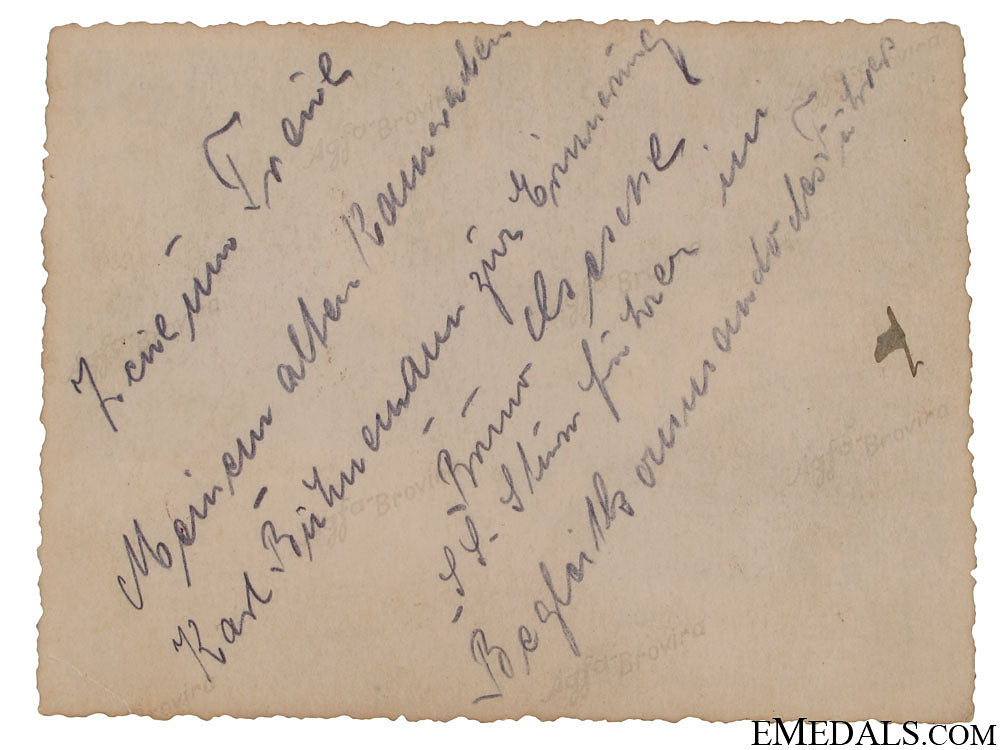 Treue
Meinem alten Kameraden
Karl Bühnemann zur Erinnerung
Bruno Gesche
S.S. Sturmführer im
Begleitkommando des Führer
Agfa-Brovira
Agfa-Brovira
Agfa-Brovira
Agfa-Brovira
EMEDALS.COM